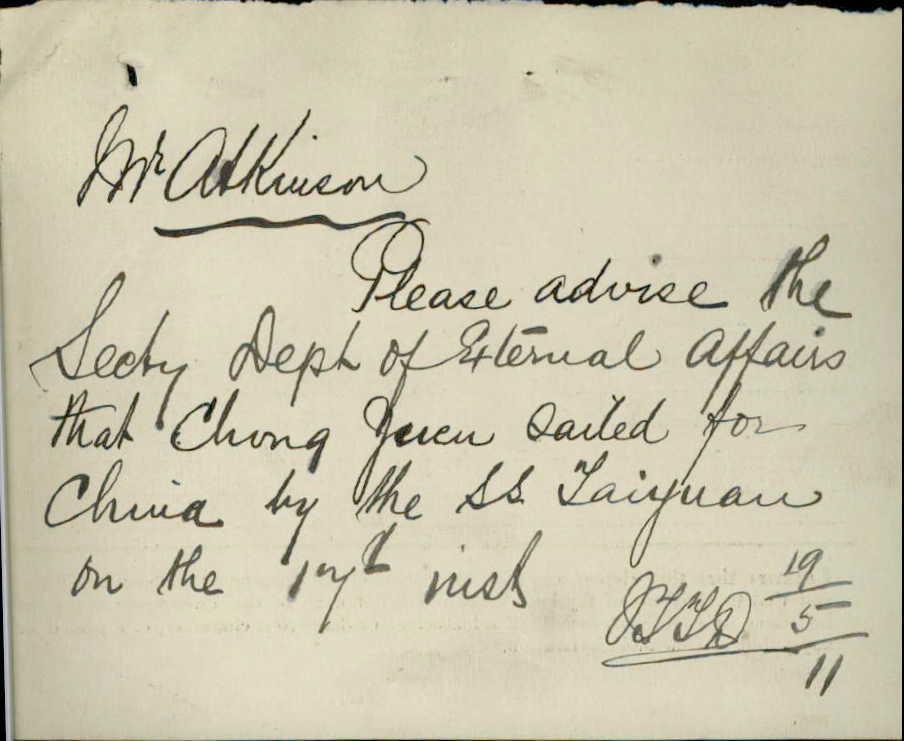 Mr Atkinson
Please advise the
Secty Dept of External Affairs
that Chong Yuen sailed for
China by the SS Taiyuan
on the 17th inst
19
5
11